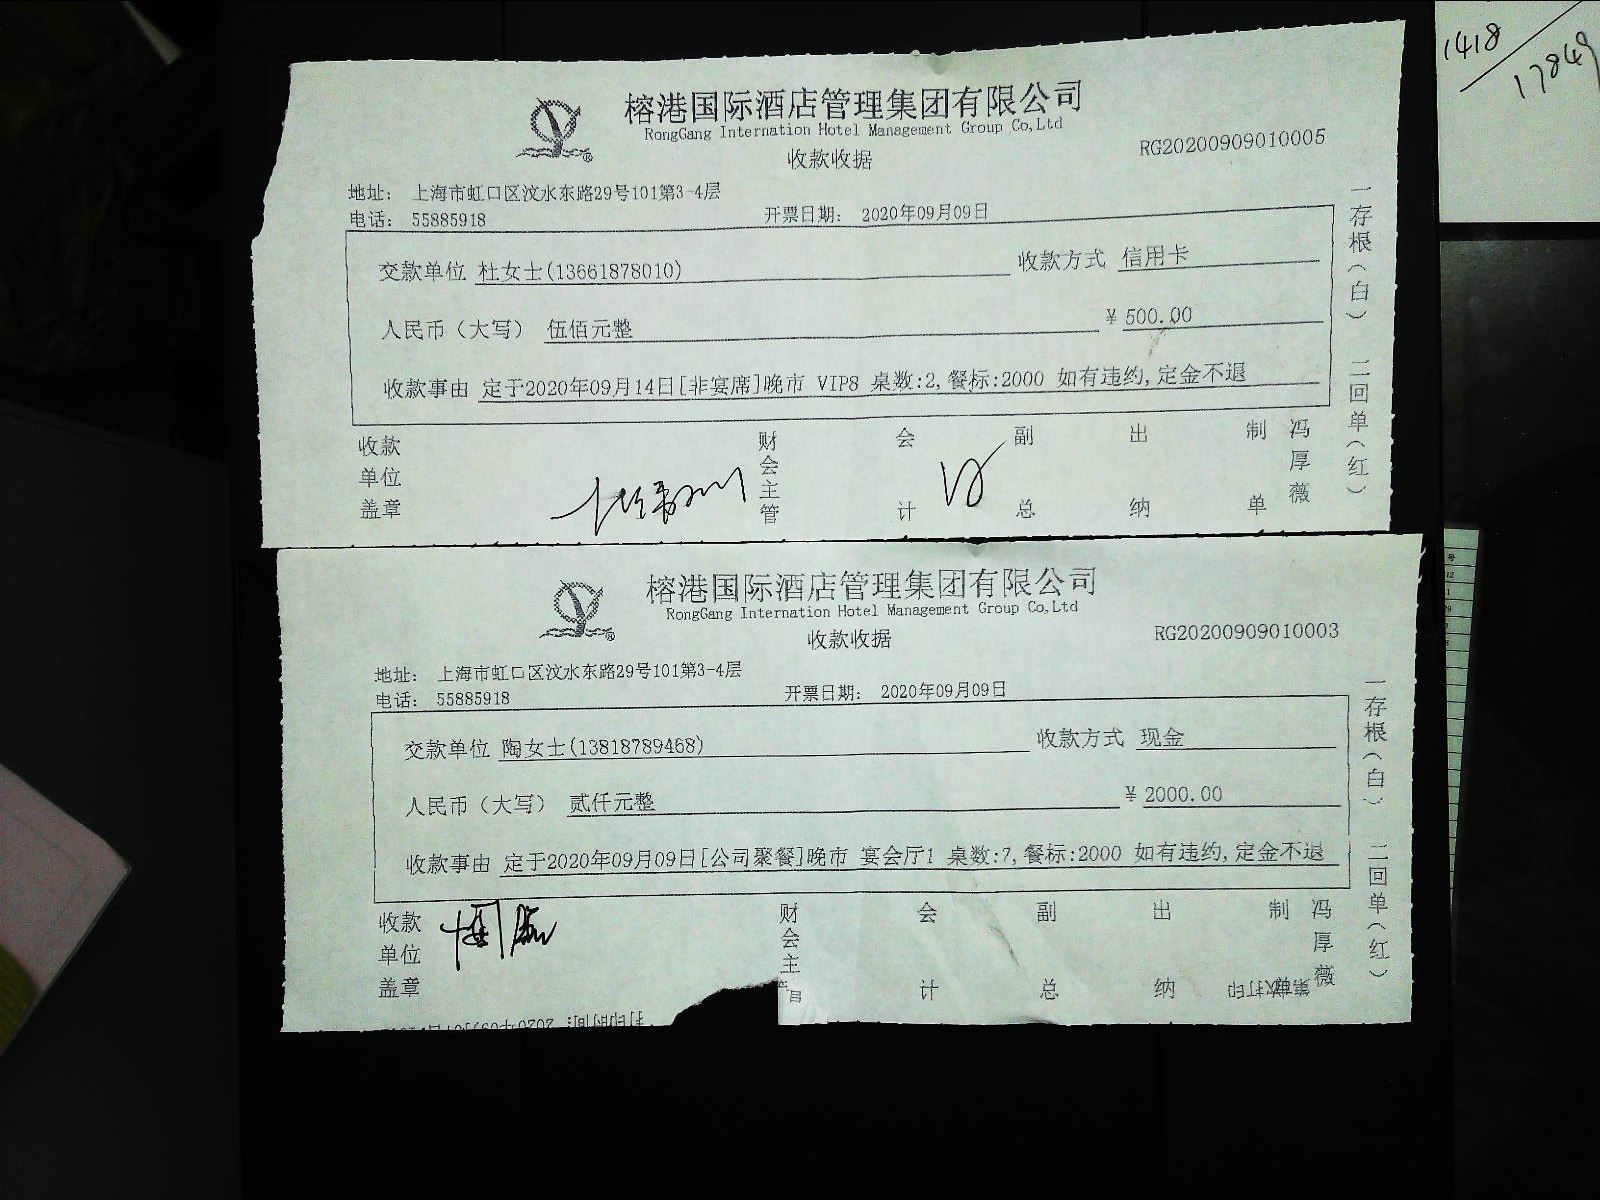 1418
17849
榕港国际酒店管理集团有限公司
RongGang Internation Hotel Management Group Co,Ltd
收款收据
RG20200909010005
地址： 上海市虹口区汶水东路29号101第3-4层
电话： 55885918 开票日期： 2020年09月09日
交款单位 杜女士(13661878010) 收款方式 信用卡
人民币（大写） 伍佰元整 ¥ 500.00
收款事由 定于2020年09月14日[非宴席]晚市 VIP8 桌数:2,餐标:2000 如有违约,定金不退
收款单位盖章 财会主管 会计 副总 出纳 制单 冯厚薇
一存根（白） 二回单（红）
榕港国际酒店管理集团有限公司
RongGang Internation Hotel Management Group Co,Ltd
收款收据
RG20200909010003
地址： 上海市虹口区汶水东路29号101第3-4层
电话： 55885918 开票日期： 2020年09月09日
交款单位 陶女士(13818789468) 收款方式 现金
人民币（大写） 贰仟元整 ¥ 2000.00
收款事由 定于2020年09月09日[公司聚餐]晚市 宴会厅1 桌数:7,餐标:2000 如有违约,定金不退
收款单位盖章 财会主管 会计 副总 出纳 制单 冯厚薇
一存根（白） 二回单（红）